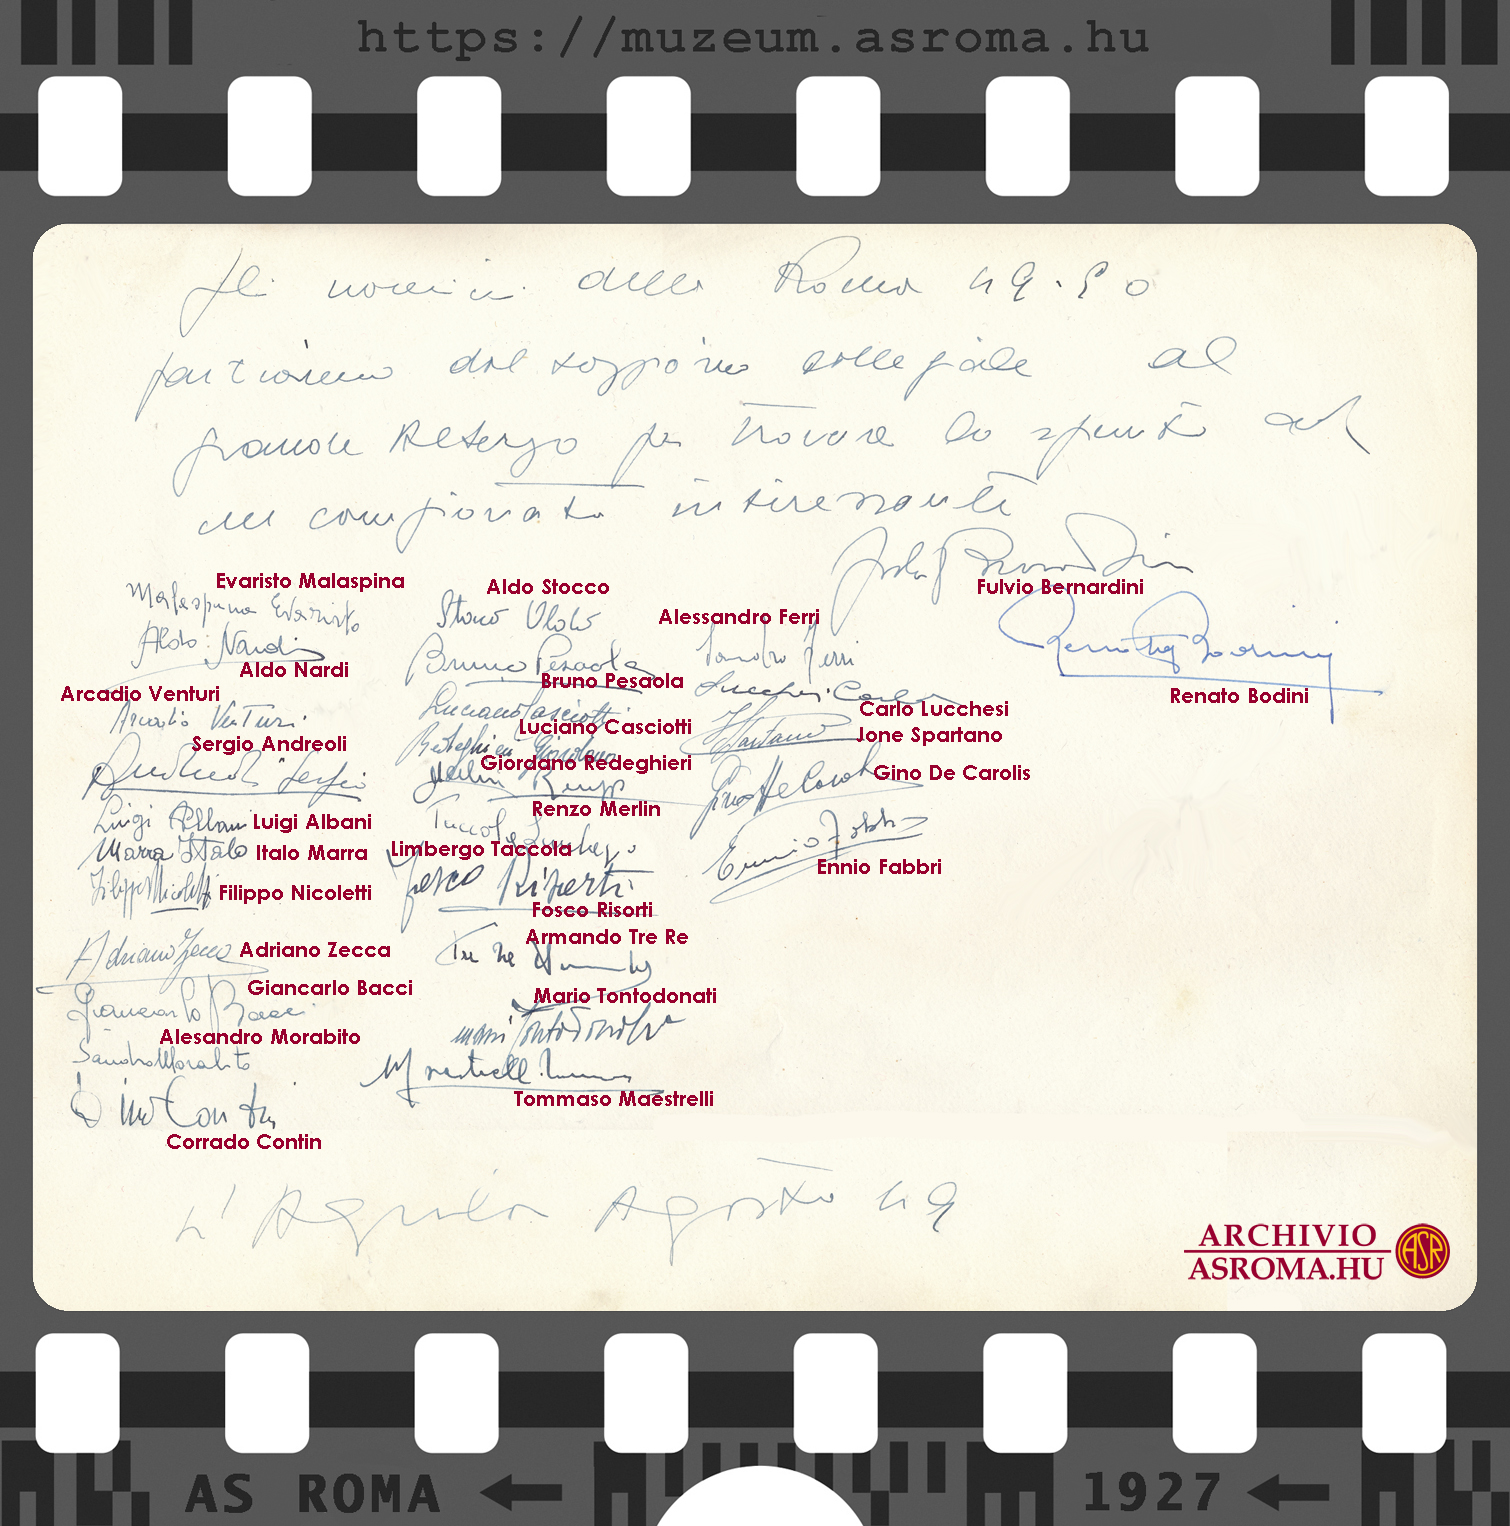 https://muzeum.asroma.hu
della Roma 49-50
partiamo dal soggiorno collegiale al
grande Albergo per trovare lo spunto ad
un campionato interessante
Evaristo Malaspina
Aldo Stocco
Fulvio Bernardini
Malaspina Evaristo
Stocco Aldo
Alessandro Ferri
Aldo Nardi
Aldo Nardi
Bruno Pesaola
Sandro Ferri
Renato Bodini
Bruno Pesaola
Renato Bodini
Arcadio Venturi
Lucchesi Carlo
Carlo Lucchesi
Arcadio Venturi
Luciano Casciotti
Luciano Casciotti
Jone Spartano
Sergio Andreoli
Redeghieri Giordano
Giordano Redeghieri
Andreoli Sergio
Merlin Renzo
Gino De Carolis
Gino De Carolis
Renzo Merlin
Luigi Albani
Luigi Albani
Taccola Limbergo
Ennio Fabbri
Marra Italo
Italo Marra
Limbergo Taccola
Ennio Fabbri
Filippo Nicoletti
Filippo Nicoletti
Fosco Risorti
Fosco Risorti
Armando Tre Re
Adriano Zecca
Adriano Zecca
Tre Re Armando
Giancarlo Bacci
Mario Tontodonati
Giancarlo Bacci
Mario Tontodonati
Alesandro Morabito
Sandro Morabito
Maestrelli
Tommaso Maestrelli
Contin
Corrado Contin
L'Aquila Agosto 49
ARCHIVIO
ASROMA.HU
ASR
AS ROMA
1927